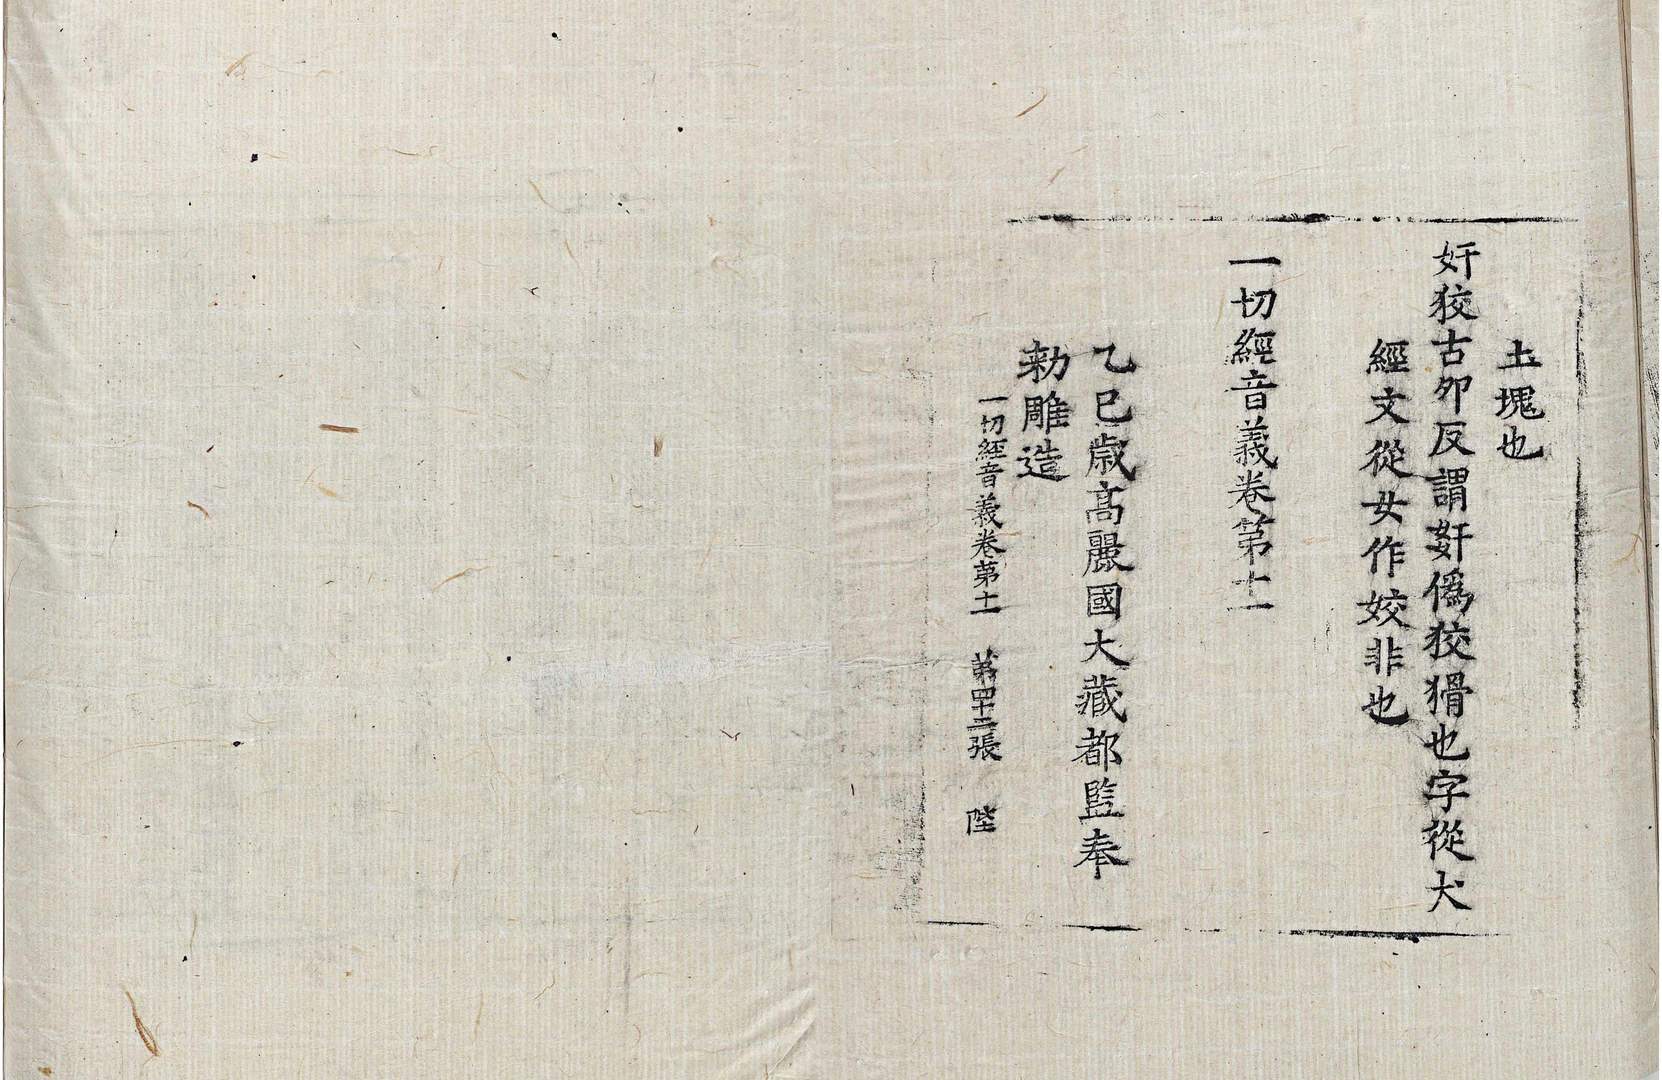 土塊也
奸狡古夘反謂姧僞狡猾也字從犬
經文從女作姣非也
一切經音義卷第十一
乙巳歳髙麗國大藏都監奉
勅雕造
一切經音義卷第十一 第四十二張 陛